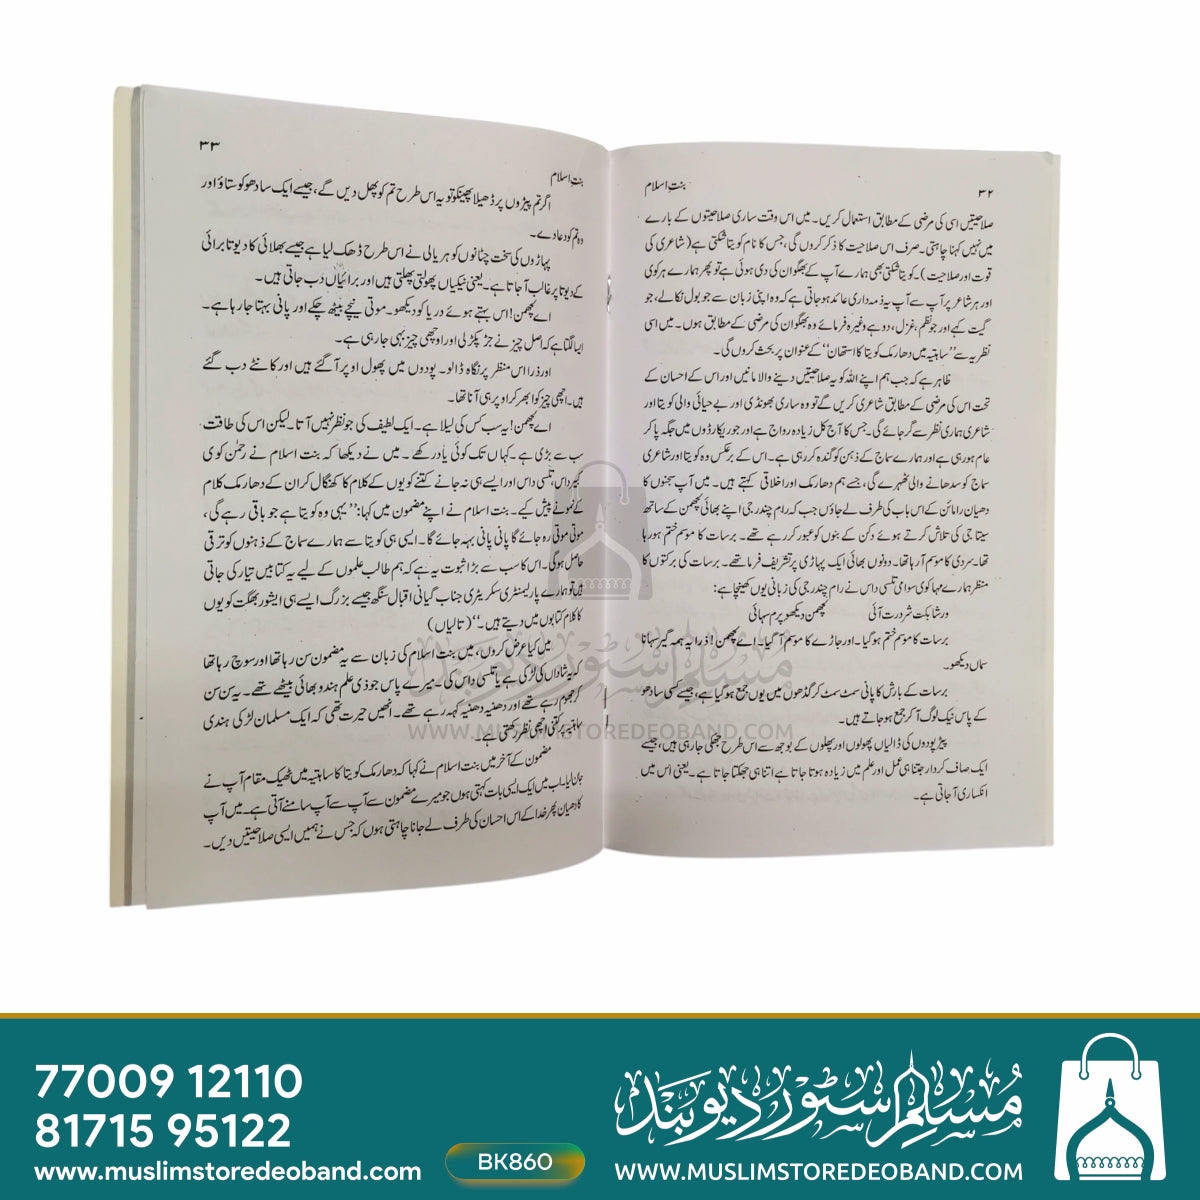 ۳۲
بنت اسلام
صلاحیتیں اسی کی مرضی کے مطابق استعمال کریں۔ میں اس وقت ساری صلاحیتوں کے بارے
میں نہیں کہنا چاہتی۔ صرف اس صلاحیت کا ذکر کروں گی، جس کا نام کویتا شکتی ہے (شاعری کی
قوت اور صلاحیت)۔ کویتا شکتی بھی ہمارے آپ کے بھگوان کی دی ہوئی ہے تو پھر ہمارے ہر کوی
اور ہر شاعر پر آپ سے آپ یہ ذمہ داری عائد ہو جاتی ہے کہ وہ اپنی زبان سے جو بول نکالے، جو
گیت کہے اور جو نظم، غزل، دوہے وغیرہ فرمائے وہ بھگوان کی مرضی کے مطابق ہوں۔ میں اسی
نظریہ سے ’’ساہتیہ میں دھارمک کویتا کا استھان‘‘ کے عنوان پر بحث کروں گی۔
ظاہر ہے کہ جب ہم اپنے اللہ کو یہ صلاحیتیں دینے والا مانیں اور اس کے احسان کے
تحت اس کی مرضی کے مطابق شاعری کریں گے تو وہ ساری بھونڈی اور بے حیائی والی کویتا اور
شاعری ہماری نظر سے گر جائے گی۔ جس کا آج کل زیادہ رواج ہے اور جو ریکارڈوں میں جگہ پا کر
عام ہو رہی ہے اور ہمارے سماج کے ذہن کو گندہ کر رہی ہے۔ اس کے برعکس وہ کویتا اور شاعری
سماج کو سدھانے والی ٹھہرے گی، جسے ہم دھارمک اور اخلاقی کہتے ہیں۔ میں آپ سجنوں کا
دھیان رامائن کے اس باب کی طرف لے جاؤں جب کہ رام چندر جی اپنے بھائی لچھمن کے ساتھ
سیتا جی کی تلاش کرتے ہوئے دکن کے بنوں کو عبور کر رہے تھے۔ برسات کا موسم ختم ہو رہا
تھا۔ سردی کا موسم آ رہا تھا۔ دونوں بھائی ایک پہاڑی پر تشریف فرما تھے۔ برسات کی برکتوں کا
منظر ہمارے مہا کوی سوامی تلسی داس نے رام چندر جی کی زبانی یوں کھینچا ہے:
ورشا بکت شردرت آئی لچھمن دیکھو پرم سہائی
برسات کا موسم ختم ہو گیا۔ اور جاڑے کا موسم آ گیا۔ اے لچھمن! ذرا یہ ہمہ گیر سہانا
سماں دیکھو۔
برسات کے بارش کا پانی سمٹ سمٹ کر گڈھوں میں یوں جمع ہو گیا ہے، جیسے کسی سادھو
کے پاس نیک لوگ آ کر جمع ہو جاتے ہیں۔
پیڑ پودوں کی ڈالیاں پھولوں اور پھلوں کے بوجھ سے اس طرح جھکی جا رہی ہیں، جیسے
ایک صاف کردار جتنا ہی عمل اور علم میں زیادہ ہوتا جاتا ہے اتنا ہی جھکتا جاتا ہے۔ یعنی اس میں
انکساری آ جاتی ہے۔
۳۳
بنت اسلام
اگر تم پیڑوں پر ڈھیلا پھینکو تو یہ اس طرح تم کو پھل دیں گے، جیسے ایک سادھو کو ستاؤ اور
وہ تم کو دعا دے۔
پہاڑوں کی سخت چٹانوں کو ہریالی نے اس طرح ڈھک لیا ہے جیسے بھلائی کا دیوتا برائی
کے دیوتا پر غالب آ جاتا ہے۔ یعنی نیکیاں پھولتی پھلتی ہیں اور برائیاں دب جاتی ہیں۔
اے لچھمن! اس بہتے ہوئے دریا کو دیکھو۔ موتی نیچے بیٹھ چکے اور پانی بہتا جا رہا ہے۔
ایسا لگتا ہے کہ اصل چیز نے جڑ پکڑ لی اور اوچھی چیز بہی جا رہی ہے۔
اور ذرا اس منظر پر نگاہ ڈالو۔ پودوں میں پھول اوپر آ گئے ہیں اور کانٹے دب گئے
ہیں۔ اچھی چیز کو ابھر کر اوپر ہی آنا تھا۔
اے لچھمن! یہ سب کس کی لیلا ہے۔ ایک لطیف کی جو نظر نہیں آتا۔ لیکن اس کی طاقت
سب سے بڑی ہے۔ کہاں تک کوئی یاد رکھے۔ میں نے دیکھا کہ بنت اسلام نے رحمٰن کوی
کبیر داس، تلسی داس اور ایسے ہی نہ جانے کتنے کویوں کے کلام کا کھنگال کر ان کے دھارمک کلام
کے نمونے پیش کیے۔ بنت اسلام نے اپنے مضمون میں کہا: ’’یہی وہ کویتا ہے جو باقی رہے گی،
موتی موتی رہ جائے گا پانی پانی بہہ جائے گا۔ ایسی ہی کویتا سے ہمارے سماج کے ذہنوں کو ترقی
حاصل ہوگی۔ اس کا سب سے بڑا ثبوت یہ ہے کہ ہم طالب علموں کے لیے یہ کتابیں تیار کی جاتی
ہیں تو ہمارے پارلیمنٹری سکریٹری جناب گیانی اقبال سنگھ جیسے بزرگ ایسے ہی ایشور بھگت کویوں
کا کلام کتابوں میں دیتے ہیں۔‘‘ (تالیاں)
میں کیا عرض کروں، میں بنت اسلام کی زبان سے یہ مضمون سن رہا تھا اور سوچ رہا تھا
کہ یہ شاداں کی لڑکی ہے یا تلسی داس کی۔ میرے پاس جو ذی علم ہندو بھائی بیٹھے تھے۔ یہ سن سن
کر جھوم رہے تھے اور دھنیہ دھنیہ کہہ رہے تھے۔ انھیں حیرت تھی کہ ایک مسلمان لڑکی ہندی
ساہتیہ پر کتنی اچھی نظر رکھتی ہے۔
مضمون کے آخر میں بنت اسلام نے کہا کہ دھارمک کویتا کا ساہتیہ میں ٹھیک مقام آپ نے
جان لیا۔ اب میں ایک ایسی بات کہتی ہوں جو میرے مضمون سے آپ سے آپ سامنے آتی ہے۔ میں آپ
کا دھیان پھر خدا کے اس احسان کی طرف لے جانا چاہتی ہوں کہ جس نے ہمیں ایسی صلاحیتیں دیں۔
مسلم سٹور دیوبند
WWW.MUSLIMSTOREDEOBAND.COM
77009 12110
81715 95122
www.muslimstoredeoband.com
BK860
مسلم سٹور دیوبند
WWW.MUSLIMSTOREDEOBAND.COM